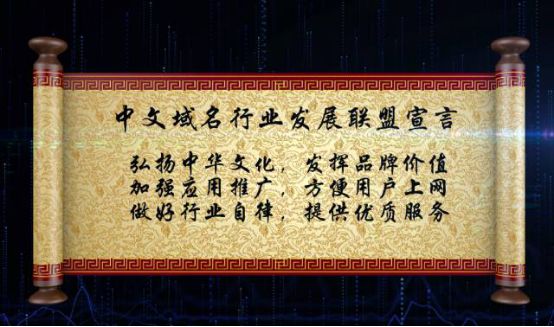 中文域名行业发展联盟宣言
弘扬中华文化，发挥品牌价值
加强应用推广，方便用户上网
做好行业自律，提供优质服务